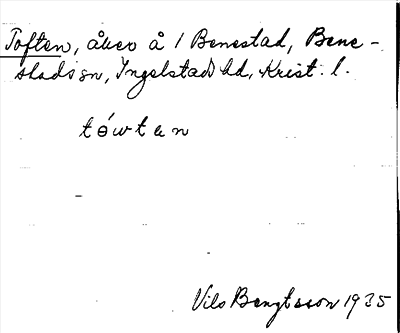 Toften, åker å 1 Benestad, Bene-
stads sn, Ingelstad hd, Krist. l.
tówtan
Nils Bengtsson 1935